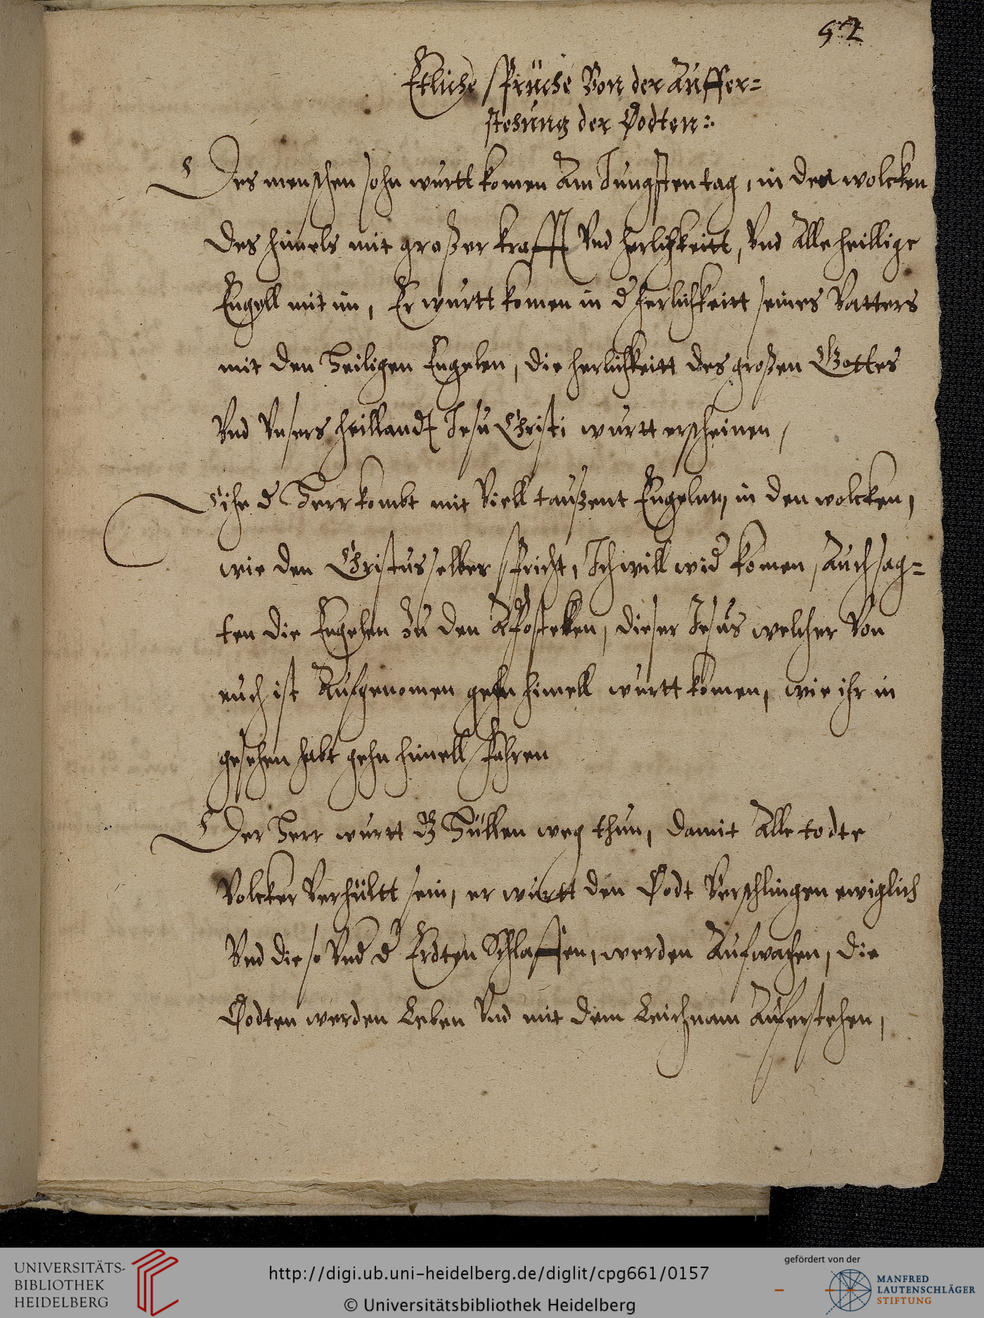 52
Etliche sprüche Von der Auffer=
stehung der Todten:
Des menschen sohn wurtt komen Am Jungsten tag, in den wolcken
des himels mit großer krafft Vnd herlichkeitt, Vnd Alle heillige
Engell mit im, Er wurtt komen in d herlichkeitt seines Vatters
mit den Heiligen Engelen, die herlichkeitt des großen Gottes
Vnd Vnsers heillands Jesu Christi wurtt erscheinen,
Sihe d Herr kombt mit Viell taußent Engelen, in den wolcken,
wie den Christus selber spricht, Ich will wid komen, Auch sag=
ten die Engelen Zu den Apostellen, dieser Jesus welcher Von
euch ist Aufgenomen gehn himell wurtt komen, wie ihr in
gesehen habt gehn himell fahren
Der Herr wurtt Hüllen weg thun, damit Alle todte
Volcker Verhültt sein, er württ den Todt Verschlingen ewiglich
Vnd die so Vnd d Erdten Schlaffen, werden Aufwachen, die
Todten werden Leben Vnd mit dem Leichnam Auferstehen,
UNIVERSITÄTS-
BIBLIOTHEK
HEIDELBERG
http://digi.ub.uni-heidelberg.de/diglit/cpg661/0157
© Universitätsbibliothek Heidelberg
gefördert von der
MANFRED
LAUTENSCHLÄGER
STIFTUNG